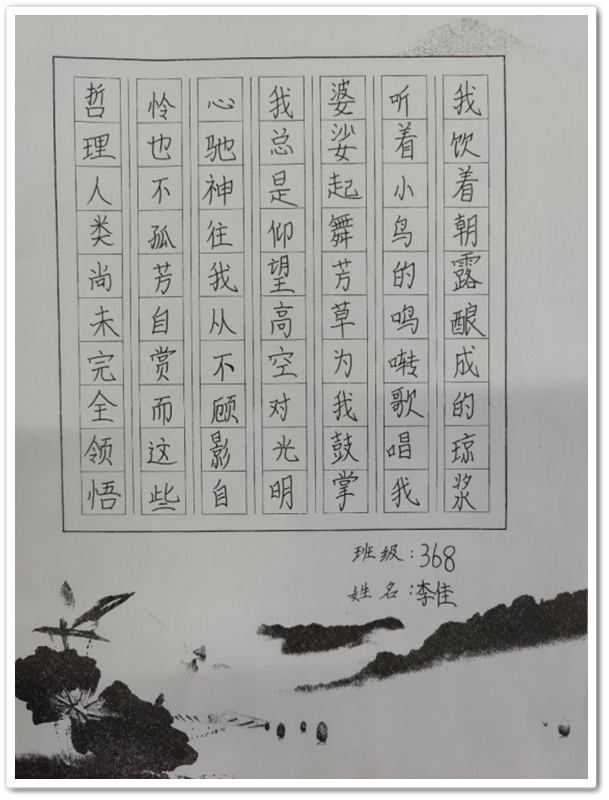 我饮着朝露酿成的琼浆
听着小鸟的鸣啭歌唱我
婆娑起舞芳草为我鼓掌
我总是仰望高空对光明
心驰神往我从不顾影自
怜也不孤芳自赏而这些
哲理人类尚未完全领悟
班级:368
姓名:李佳